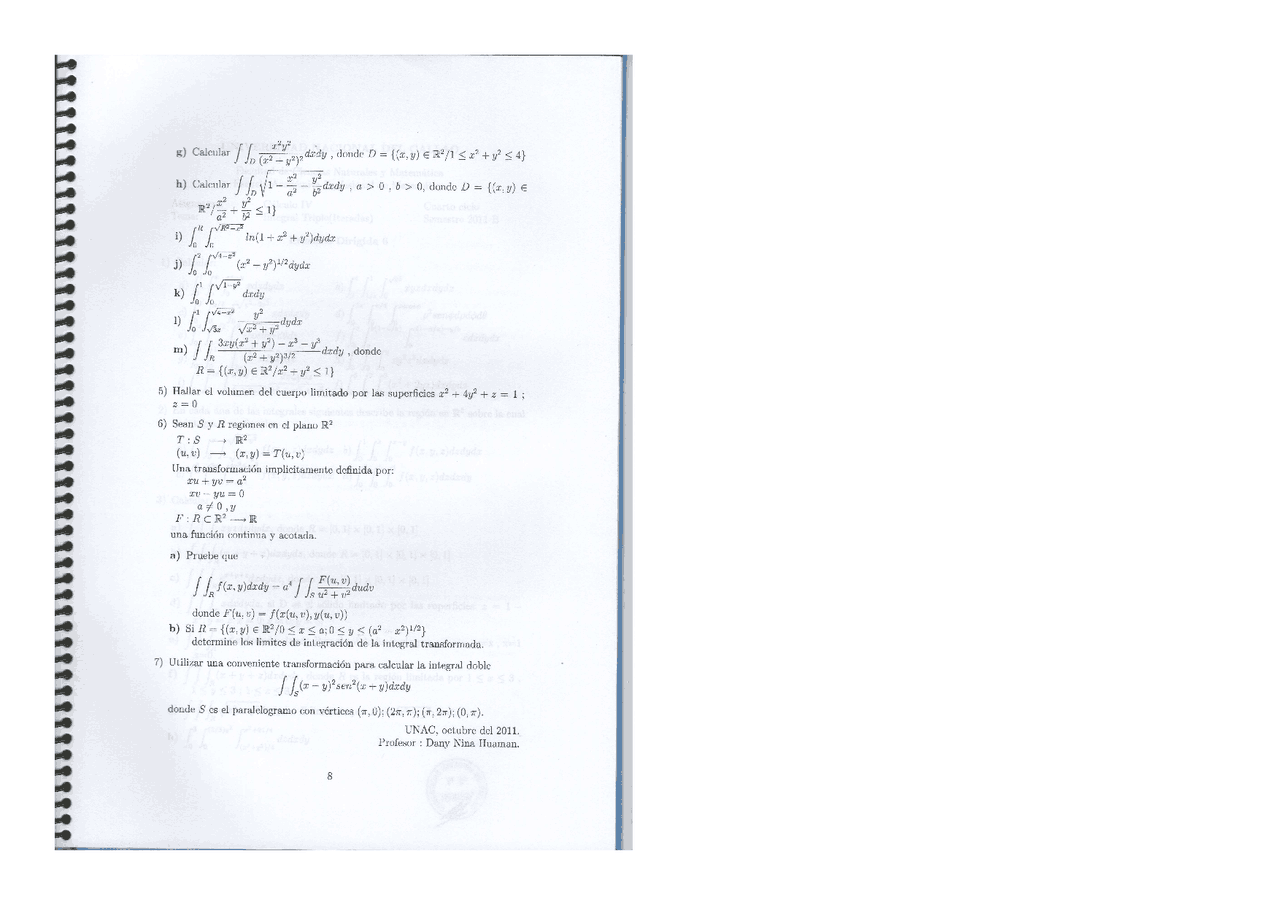 g) Calcular ∫∫_D x²y²/(x² − y²)² dxdy , donde D = {(x, y) ∈ ℝ²/1 ≤ x² + y² ≤ 4}
h) Calcular ∫∫_D √(1 − x²/a² − y²/b²) dxdy , a > 0 , b > 0, donde D = {(x, y) ∈
ℝ²/ x²/a² + y²/b² ≤ 1}
i) ∫_0^R ∫_0^√(R²−x²) ln(1 + x² + y²)dydx
j) ∫_0^2 ∫_0^√(4−x²) (x² − y²)^{1/2} dydx
k) ∫_0^1 ∫_0^√(1−y²) dxdy
l) ∫_0^1 ∫_{√3x}^√(4−x²) y²/√(x² + y²) dydx
m) ∫∫_R (3xy(x² + y²) − x³ − y³)/(x² + y²)^{3/2} dxdy , donde
R = {(x, y) ∈ ℝ²/x² + y² ≤ 1}
5) Hallar el volumen del cuerpo limitado por las superficies x² + 4y² + z = 1 ;
z = 0
6) Sean S y R regiones en el plano ℝ²
T : S ⟶ ℝ²
(u, v) ⟶ (x, y) = T(u, v)
Una transformación implicitamente definida por:
xu + yv = a²
xv − yu = 0
a ≠ 0 , y
F : R ⊂ ℝ² ⟶ ℝ
una función continua y acotada.
a) Pruebe que
∫∫_R f(x, y)dxdy − a⁴ ∫∫_S F(u, v)/(u² + v²) dudv
donde F(u, v) = f(x(u, v), y(u, v))
b) Si R = {(x, y) ∈ ℝ²/0 ≤ x ≤ a; 0 ≤ y ≤ (a² − x²)^{1/2}}
determine los limites de integración de la integral transformada.
7) Utilizar una conveniente transformación para calcular la integral doble
∫∫_S (x − y)² sen²(x + y)dxdy
donde S es el paralelogramo con vértices (π, 0); (2π, π); (π, 2π); (0, π).
UNAC, octubre del 2011.
Profesor : Dany Nina Huaman.
8